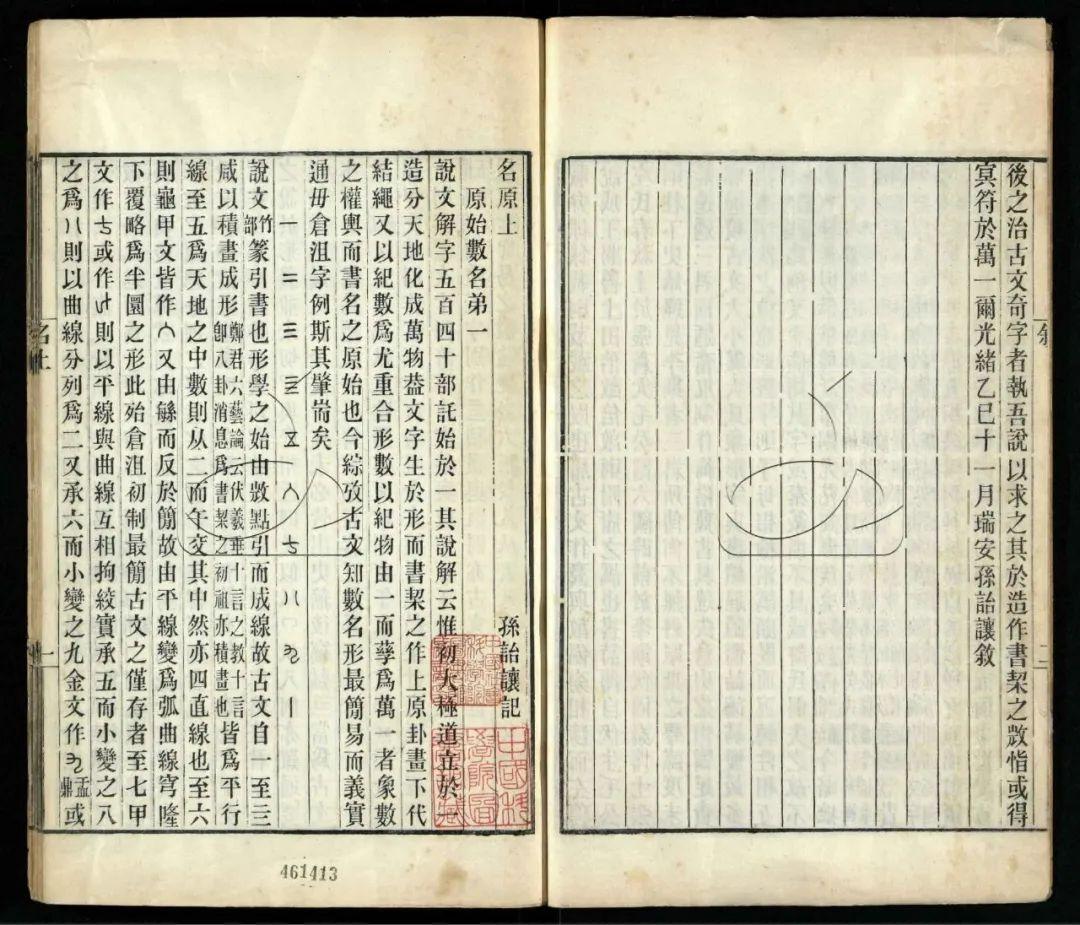 後之治古文奇字者執吾說以求之其於造作書契之恉或得
冥符於萬一爾光緒乙巳十一月瑞安孫詒讓敘
敘
二
名原上
孫詒讓記
原始數名弟一
說文解字五百四十部託始於一其說解云惟初大極道立於一
造分天地化成萬物葢文字生於形而書栔之作上原卦畫下代
結繩又以紀數爲尤重合形數以紀物由一而孳爲萬一者象數
之權輿而書名之原始也今綜攷古文知數名形最簡易而義實
通毋倉沮字例斯其肇耑矣
一二三亖
說文竹部篆引書也形學之始由㪚點引而成線故古文自一至三
咸以積畫成形鄭君六藝論云伏羲垂十言之教十言卽八卦消息爲書栔之初祖亦積畫也皆爲平行
線至五爲天地之中數則从二而午交其中然亦四直線也至六
則龜甲文皆作又由緐而反於簡故由平線變爲弧曲線穹隆
下覆略爲半圜之形此殆倉沮初制最簡古文之僅存者至七甲
文作或作則以平線與曲線互相拘絞實承五而小變之八
之爲八則以曲線分列爲二又承六而小變之九金文作盂鼎或
名上
一
461413